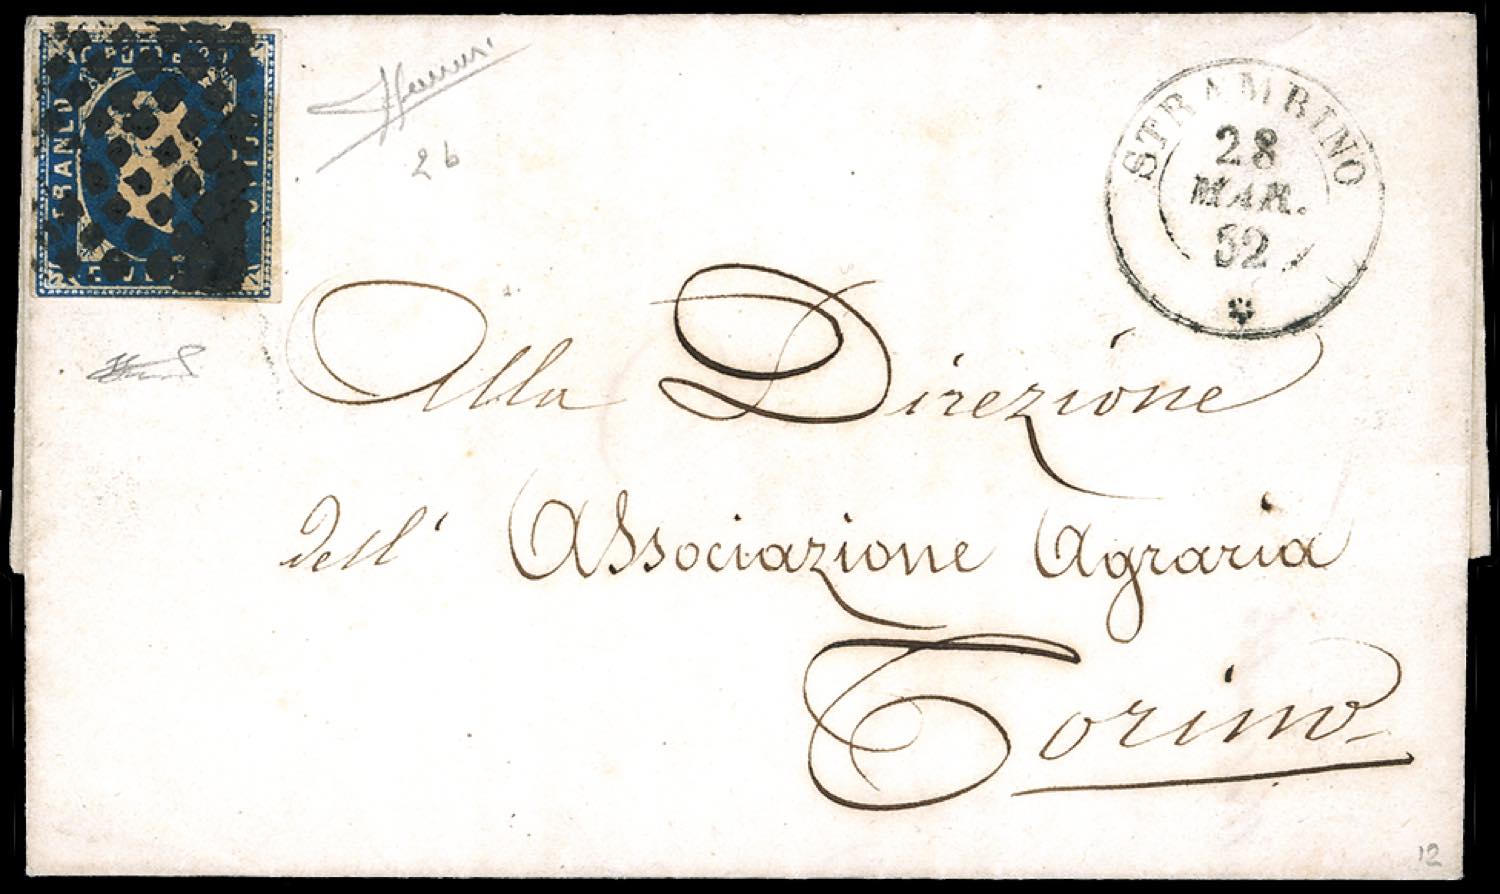 C. POSTE 20
FRANCO
STRAMBINO
28
MAR.
52
2 b
Alla Direzione
dell' Associazione Agraria
Torino
12